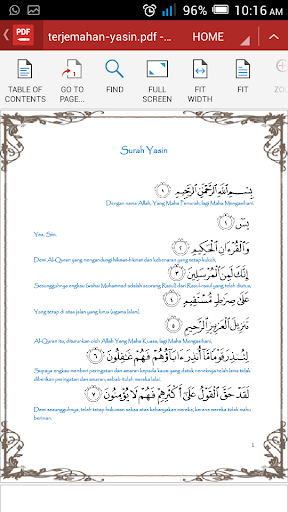 10:16 AM
PDF
terjemahan-yasin.pdf -...
HOME
TABLE OF CONTENTS
GO TO PAGE...
FIND
FULL SCREEN
FIT WIDTH
FIT
ZOO
Surah Yasin
بِسْمِ ٱللَّهِ ٱلرَّحْمَٰنِ ٱلرَّحِيمِ
Dengan nama Allah, Yang Maha Pemurah, lagi Maha Mengasihani
يسٓ ١
Yaa, Siin.
وَٱلْقُرْءَانِ ٱلْحَكِيمِ ٢
Demi Al-Quran yang mengandungi hikmat-hikmat dan kebenaran yang tetap kukuh,
إِنَّكَ لَمِنَ ٱلْمُرْسَلِينَ ٣
Sesungguhnya engkau (wahai Muhammad adalah seorang Rasul) dari Rasul-rasul yang telah diutus,
عَلَىٰ صِرَٰطٍ مُّسْتَقِيمٍ ٤
Yang tetap di atas jalan yang lurus (agama Islam).
تَنزِيلَ ٱلْعَزِيزِ ٱلرَّحِيمِ ٥
Al-Quran itu, diturunkan oleh Allah Yang Maha Kuasa, lagi Maha Mengasihani,
لِتُنذِرَ قَوْمًا مَّآ أُنذِرَ ءَابَآؤُهُمْ فَهُمْ غَٰفِلُونَ ٦
Supaya engkau memberi peringatan dan amaran kepada kaum yang datuk neneknya telah lama tidak
diberikan peringatan dan amaran; sebab itulah mereka lalai.
لَقَدْ حَقَّ ٱلْقَوْلُ عَلَىٰٓ أَكْثَرِهِمْ فَهُمْ لَا يُؤْمِنُونَ ٧
Demi sesungguhnya, telah tetap hukuman seksa atas kebanyakan mereka, kerana mereka tidak mahu
beriman.
1